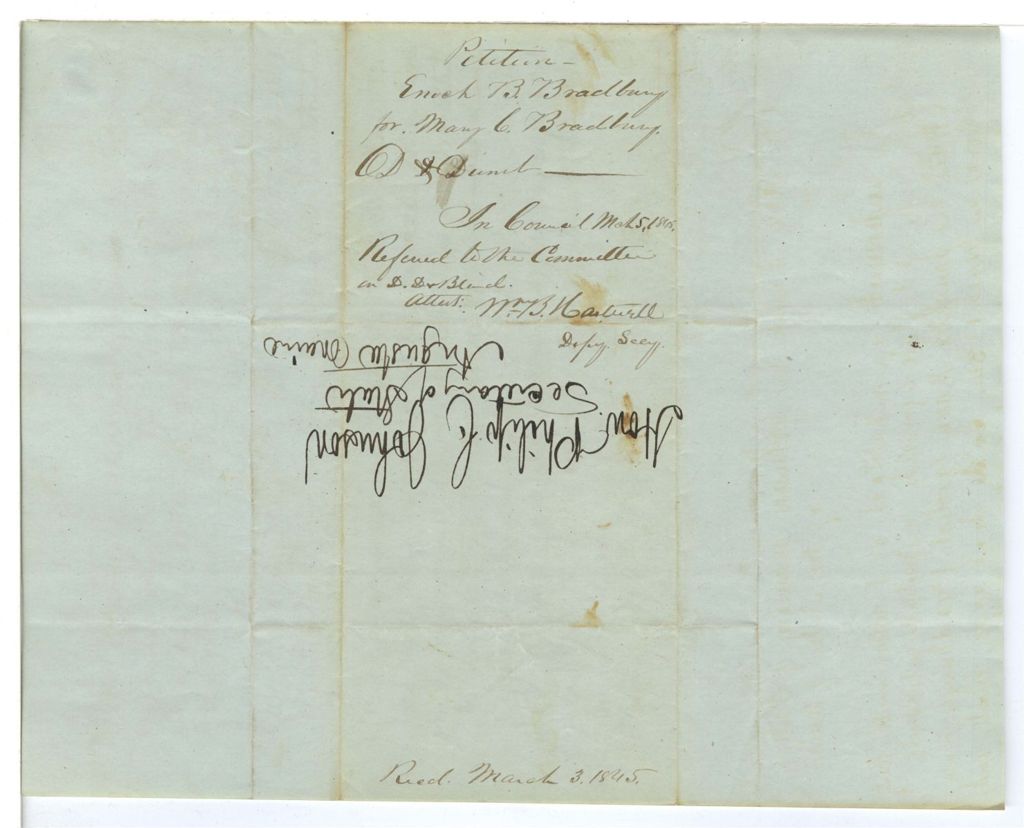 Petition -
Enoch B. Bradbury
for. Mary C. Bradbury.
D & Dumb
In Council Mch 5, 1845.
Referred to the Committee
on D. D & Blind.
Attest: Wm B. Hartwell
Depy. Secy.
Hon. Philip C. Johnson
Secretary of State
Augusta Maine
Recd. March 3. 1845.